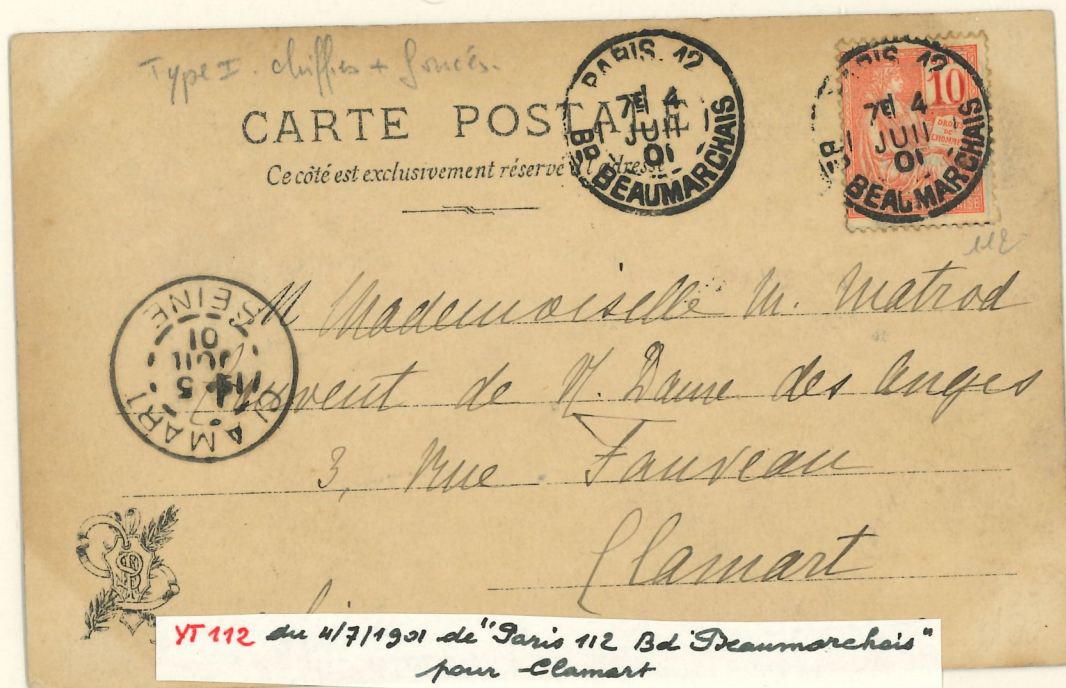 Type I. chiffres + foncés.
CARTE POSTALE
Ce côté est exclusivement réservé à l'adresse
PARIS. 12
7E 4
JUIL
01
BD BEAUMARCHAIS
PARIS. 12
7E 4
JUIL
01
BD BEAUMARCHAIS
10
DROITS
DE
L'HOMME
112
CLAMART
5
JUIL
01
SEINE
M Mademoiselle M. Matrod
Couvent de N. Dame des Anges
3, Rue Fauveau
Clamart
YT 112 du 4/7/1901 de "Paris 112 Bd Beaumarchais"
pour Clamart